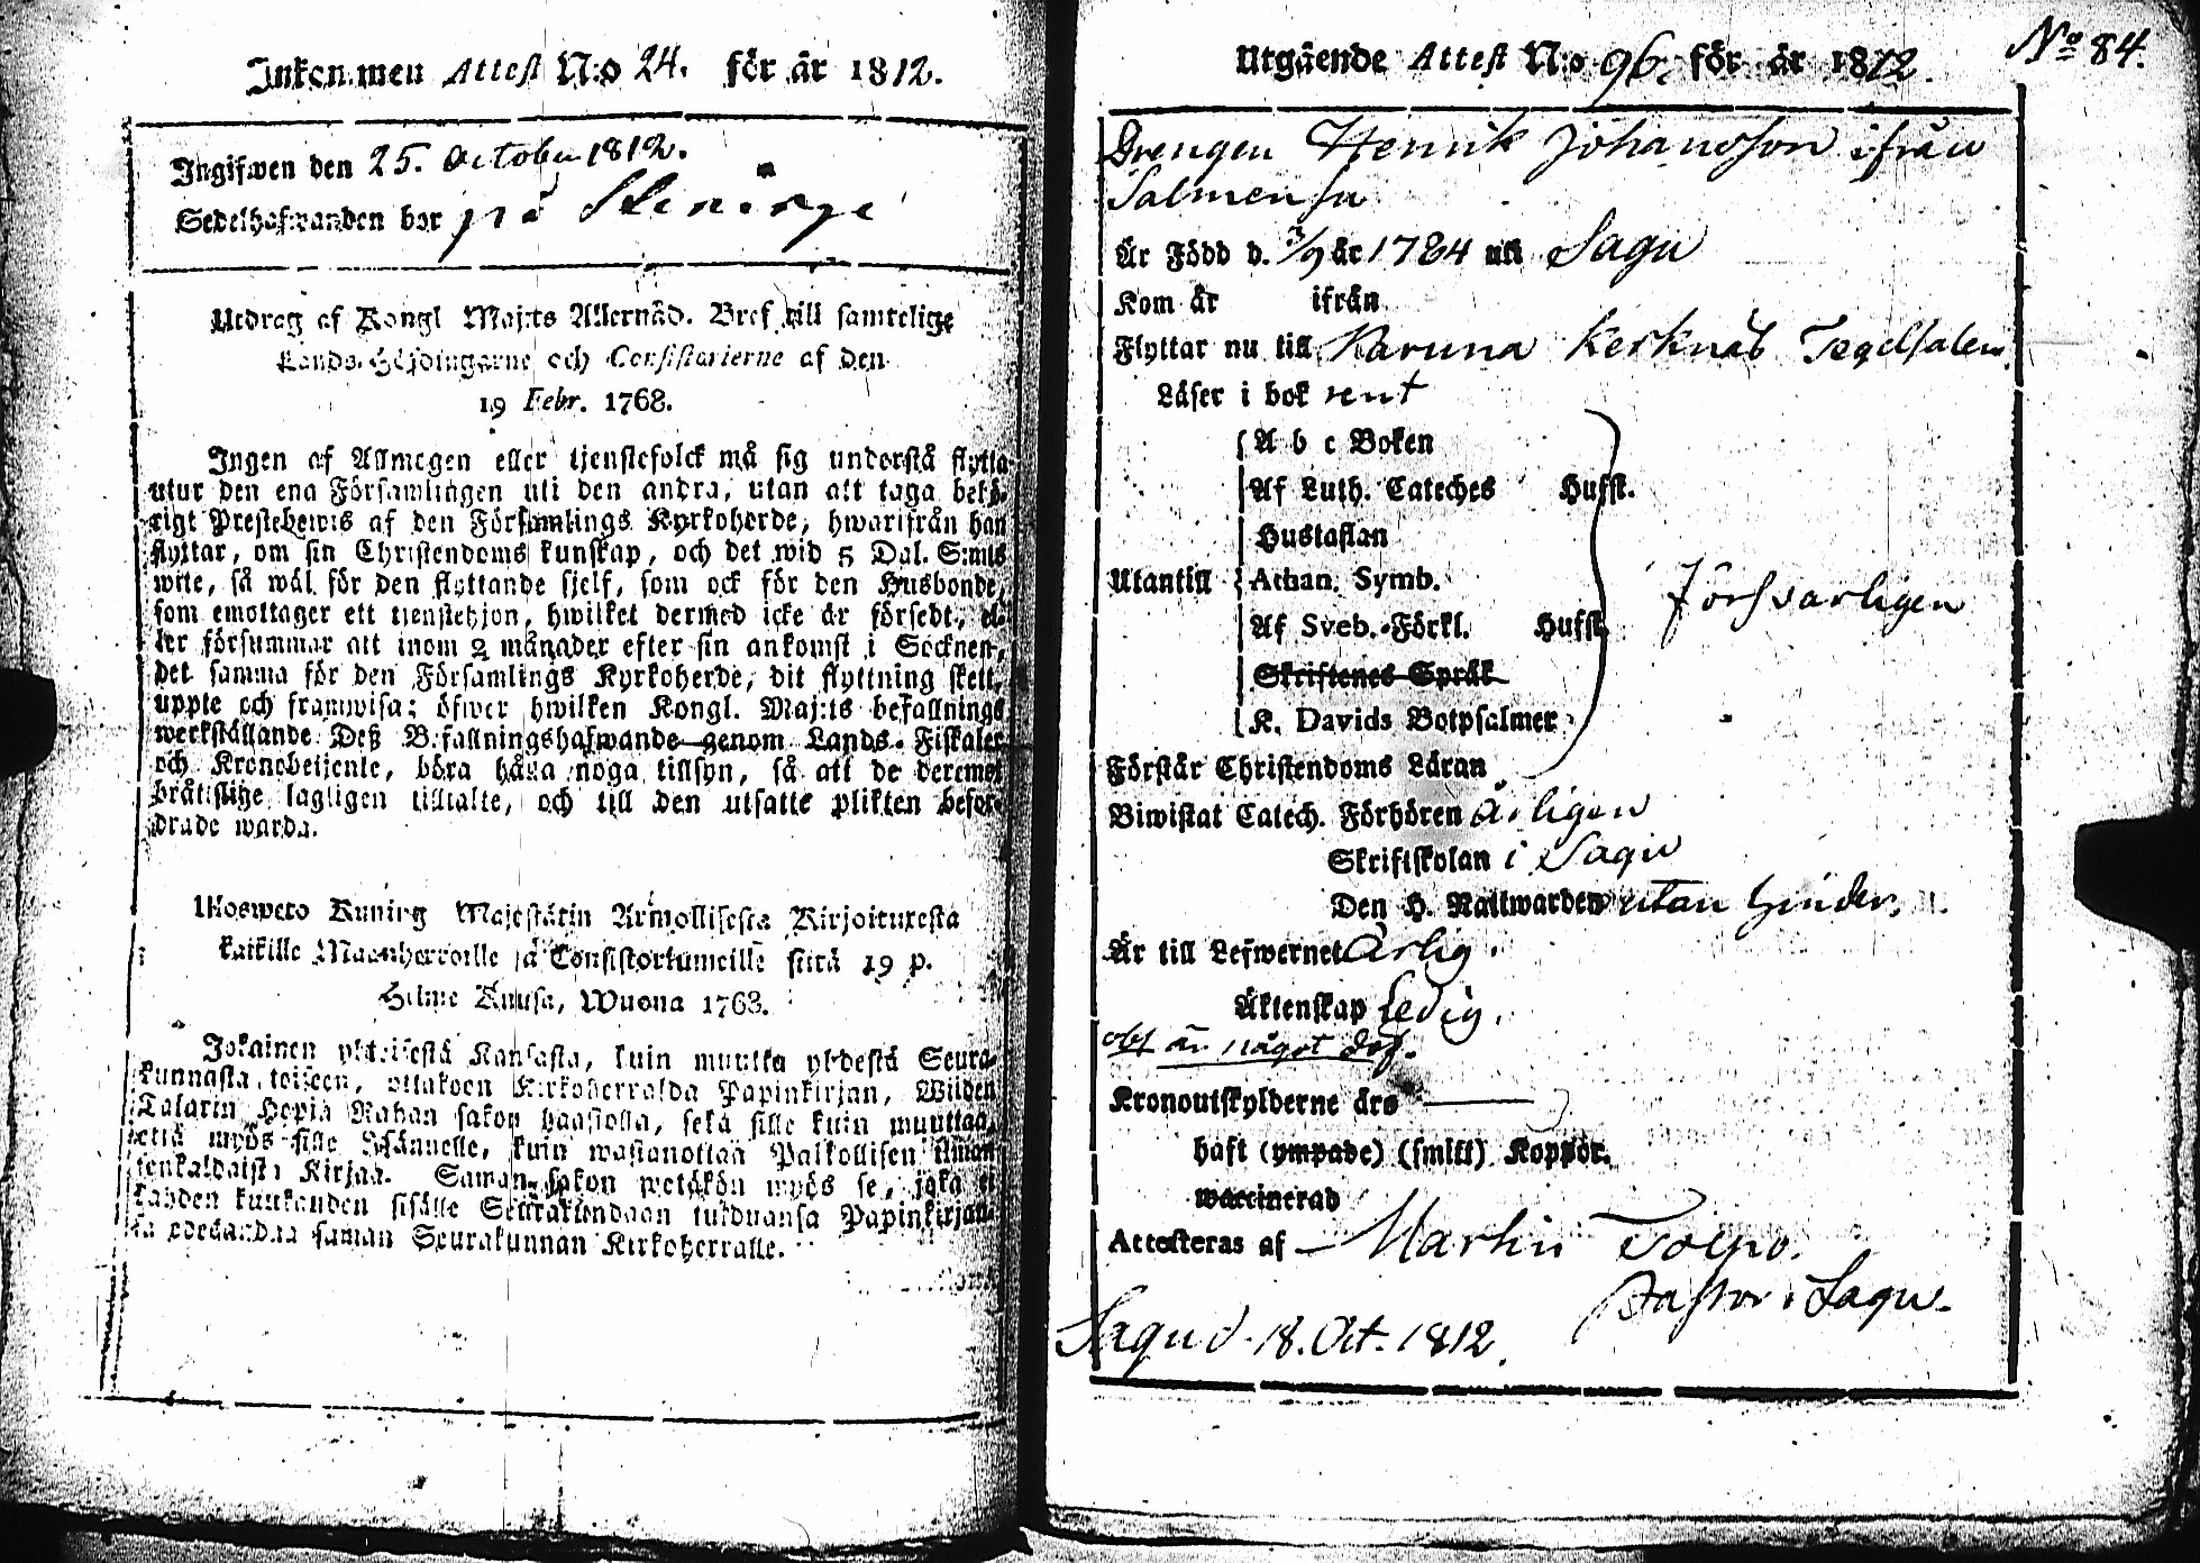 Inkommen Attest N:o 24. för år 1812.
Ingifwen den 25. October 1812.
Sedelhafwanden bor på
Utdrag af Kongl Maj:ts Allernåd. Bref till samtelige
Lands-Höfdingarne och Consistorierne af den
19 Febr. 1768.
Ingen af Allmogen eller tjenstefolck må sig understå flytta
utur den ena Församlingen uti den andra, utan att taga behö-
rigt Prestebewis af den Församlings Kyrkoherde, hwarifrån han
flyttar, om sin Christendoms kunskap, och det wid 5 Dal. S:mts
wite, så wäl för den flyttande sjelf, som ock för den Husbonde,
som emottager ett tjenstehjon, hwilket dermed icke är försedt, el-
ler försummar att inom 2 månader efter sin ankomst i Socknen,
det samma för den Församlings Kyrkoherde, dit flyttning skett,
uppte och framwisa; öfwer hwilken Kongl. Maj:ts befallnings
werkställande Deß Befallningshafwande genom Lands-Fiskaler
och Kronobetjente, böra hafwa noga tillsyn, så att de deremot
bråtslige lagligen tilltalte, och till den utsatte plikten befor-
drade warda.
Ulosweto Kuning Majestätin Armollisesta Kirjoituxesta
kaikille Maanherroille ja Consistoriumeille siitä 19 p.
Helme Kuusa, Wuona 1768.
Jokainen yhteisestä Kansasta, kuin muutta yhdestä Seura-
kunnasta toiseen, ottakoon Kirkoherralda Papinkirjan, Wiiden
Talarin Hopia Rahan sakon haastolla, sekä sille kuin muuttaa,
että myös sille Isännelle, kuin wastanottaa Palkollisen ilman
senkaldaista Kirjaa. Saman sakon wetäkön myös se, joka ei
kahden kuukauden sisälle Seurakundaan tulduansa Papinkirjan-
sa edesanna saman Seurakunnan Kirkoherralle.
Utgående Attest N:o 96. för år 1812. No 84.
Drengen Henrik Johansson ifrån
Salmensu
Är Född d. 3/9 år 1784 uti Sagu
Kom år ifrån
Flyttar nu till Karuna Kerknäs Tegelsalen
Läser i bok rent
A b c Boken
Af Luth. Cateches Hufst.
Hustaflan
Utantill Athan. Symb.
Af Sveb. Förkl. Hufst.
Skriftenes Språk
K. Davids Botpsalmer
Försvarligen
Förstår Christendoms Läran
Biwistat Catech. Förhören Årligen
Skriftskolan i Sagu
Den H. Nattwarden utan hinder.
Är till Lefwernet Ärlig.
Äktenskap Ledig.
obs är något döf.
Kronoutskylderne äro
haft (ympade) (smitt) Koppor.
waccinerad
Attesteras af Martin Tolpo.
Pastor i Sagu.
Sagu d. 18. Oct. 1812.